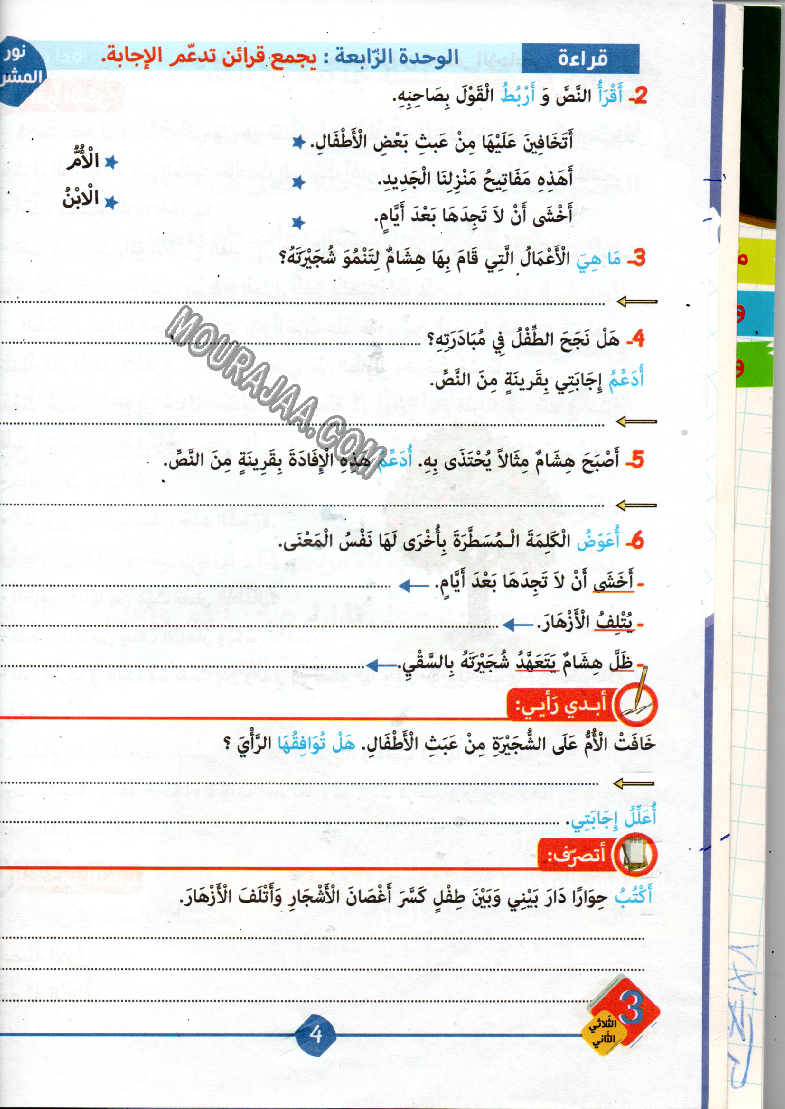 قراءة
الوحدة الرّابعة : يجمع قرائن تدعّم الإجابة.
نور
المشر
2- أَقْرَأُ النَّصَّ وَ أَرْبُطُ الْقَوْلَ بِصَاحِبِهِ.
أَتَخَافِينَ عَلَيْهَا مِنْ عَبَثِ بَعْضِ الْأَطْفَالِ.
أَهَذِهِ مَفَاتِيحُ مَنْزِلِنَا الْجَدِيدِ.
أَخْشَى أَنْ لَا تَجِدَهَا بَعْدَ أَيَّامٍ.
الْأُمُّ
الْاِبْنُ
3- مَا هِيَ الْأَعْمَالُ الَّتِي قَامَ بِهَا هِشَامٌ لِتَنْمُوَ شُجَيْرَتَهُ؟
4- هَلْ نَجَحَ الطِّفْلُ فِي مُبَادَرَتِهِ؟
أُدَعِّمُ إِجَابَتِي بِقَرِينَةٍ مِنَ النَّصِّ.
5- أَصْبَحَ هِشَامٌ مِثَالاً يُحْتَذَى بِهِ. أُدَعِّمُ هَذِهِ الْإِفَادَةَ بِقَرِينَةٍ مِنَ النَّصِّ.
6- أُعَوِّضُ الْكَلِمَةَ الْـمُسَطَّرَةَ بِأُخْرَى لَهَا نَفْسُ الْمَعْنَى.
- أَخْشَى أَنْ لَا تَجِدَهَا بَعْدَ أَيَّامٍ.
- يُتْلِفُ الْأَزْهَارَ.
- ظَلَّ هِشَامٌ يَتَعَهَّدُ شُجَيْرَتَهُ بِالسَّقْيِ.
أبدي رَأيي:
خَافَتْ الْأُمُّ عَلَى الشُّجَيْرَةِ مِنْ عَبَثِ الْأَطْفَالِ. هَلْ تُوَافِقُهَا الرَّأْيَ ؟
أُعَلِّلُ إِجَابَتِي.
أتصرّف:
أَكْتُبُ حِوَارًا دَارَ بَيْنِي وَبَيْنَ طِفْلٍ كَسَّرَ أَغْصَانَ الْأَشْجَارِ وَأَتْلَفَ الْأَزْهَارَ.
3
الثّلاثي
الثّاني
4
MOURAJAA.COM